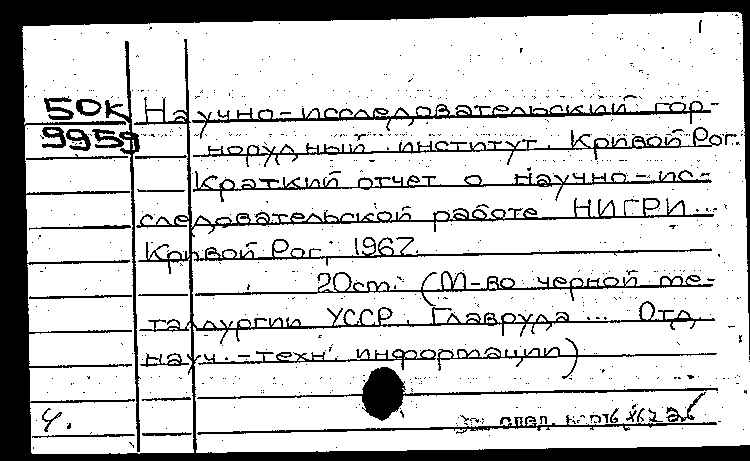 50К Научно-исследовательский гор-
9959 норудный институт. Кривой Рог.
Краткий отчет о научно-ис-
следовательской работе НИГРИ...
Кривой Рог, 1967.
20 cm. (М-во черной ме-
таллургии УССР. Главруда... Отд.
науч.-техн. информации)
Ч. след.